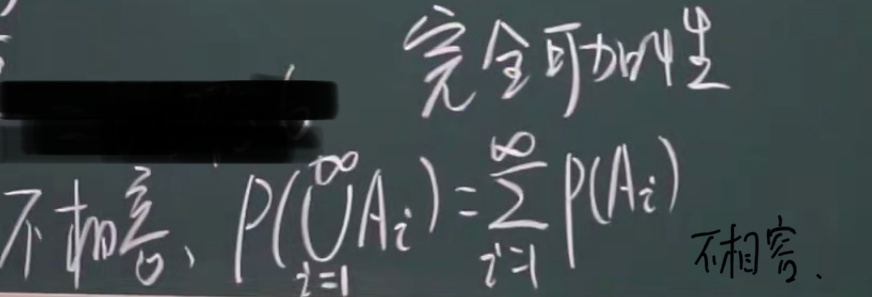 完全可加性
不相容、P(⋃_{i=1}^{∞} A_i) = ∑_{i=1}^{∞} P(A_i)
不相容.